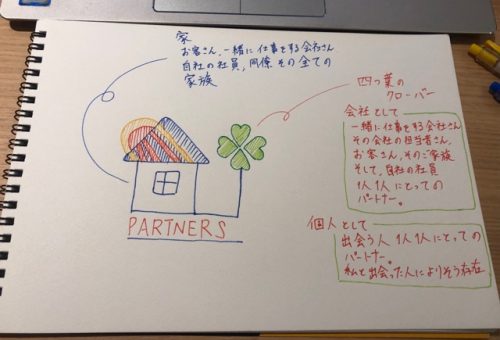 家
お客さん、一緒に仕事をする会社さん
自社の社員、同僚 その全ての
家族
四つ葉の
クローバー
会社として
一緒に仕事をする会社さん
その会社の担当者さん、
お客さん、そのご家族
そして、自社の社員
1人1人にとっての
パートナー。
PARTNERS
個人として
出会う人 1人1人にとっての
パートナー。
私と出会った人によりそう存在